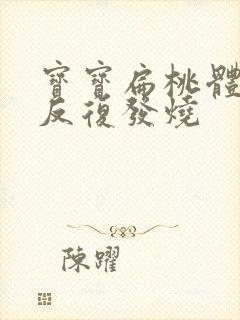 寶寶扁桃體
反復發燒
陳躍